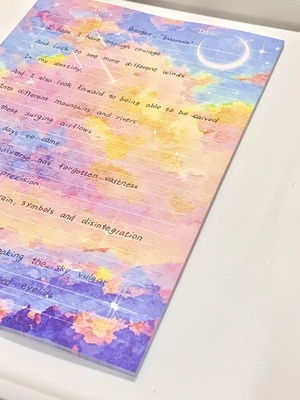 Date:
Borges "Insomnia"
I hope I have enough courage
And luck to see more different winds
In my destiny
And I also look forward to being able to be carved
Into different mountains and rivers
these surging airflows
days to come
universe has forgotten vastness
precision
rain, symbols and disintegration
making the sky vulgar
eyelids